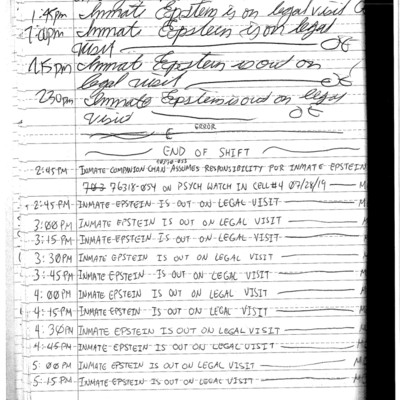 1:45pm Inmat Epstein is on legal visit
2:00pm Inmat Epstein is on legal
visit OE
2:15pm Inmate Epstein is out on
legal visit OE
2:30pm Inmate Epstein is out on legal
visit OE
E ERROR
END OF SHIFT
2:45PM INMATE COMPANION CHAN ASSUMES RESPONSIBILITY FOR INMATE EPSTEIN
76318-054 ON PSYCH WATCH IN CELL #4 07/28/19
2:45PM INMATE EPSTEIN IS OUT ON LEGAL VISIT
3:00PM INMATE EPSTEIN IS OUT ON LEGAL VISIT
3:15PM INMATE EPSTEIN IS OUT ON LEGAL VISIT
3:30PM INMATE EPSTEIN IS OUT ON LEGAL VISIT
3:45PM INMATE EPSTEIN IS OUT ON LEGAL VISIT
4:00PM INMATE EPSTEIN IS OUT ON LEGAL VISIT
4:15PM INMATE EPSTEIN IS OUT ON LEGAL VISIT
4:30PM INMATE EPSTEIN IS OUT ON LEGAL VISIT
4:45PM INMATE EPSTEIN IS OUT ON LEGAL VISIT
5:00PM INMATE EPSTEIN IS OUT ON LEGAL VISIT
5:15PM INMATE EPSTEIN IS OUT ON LEGAL VISIT